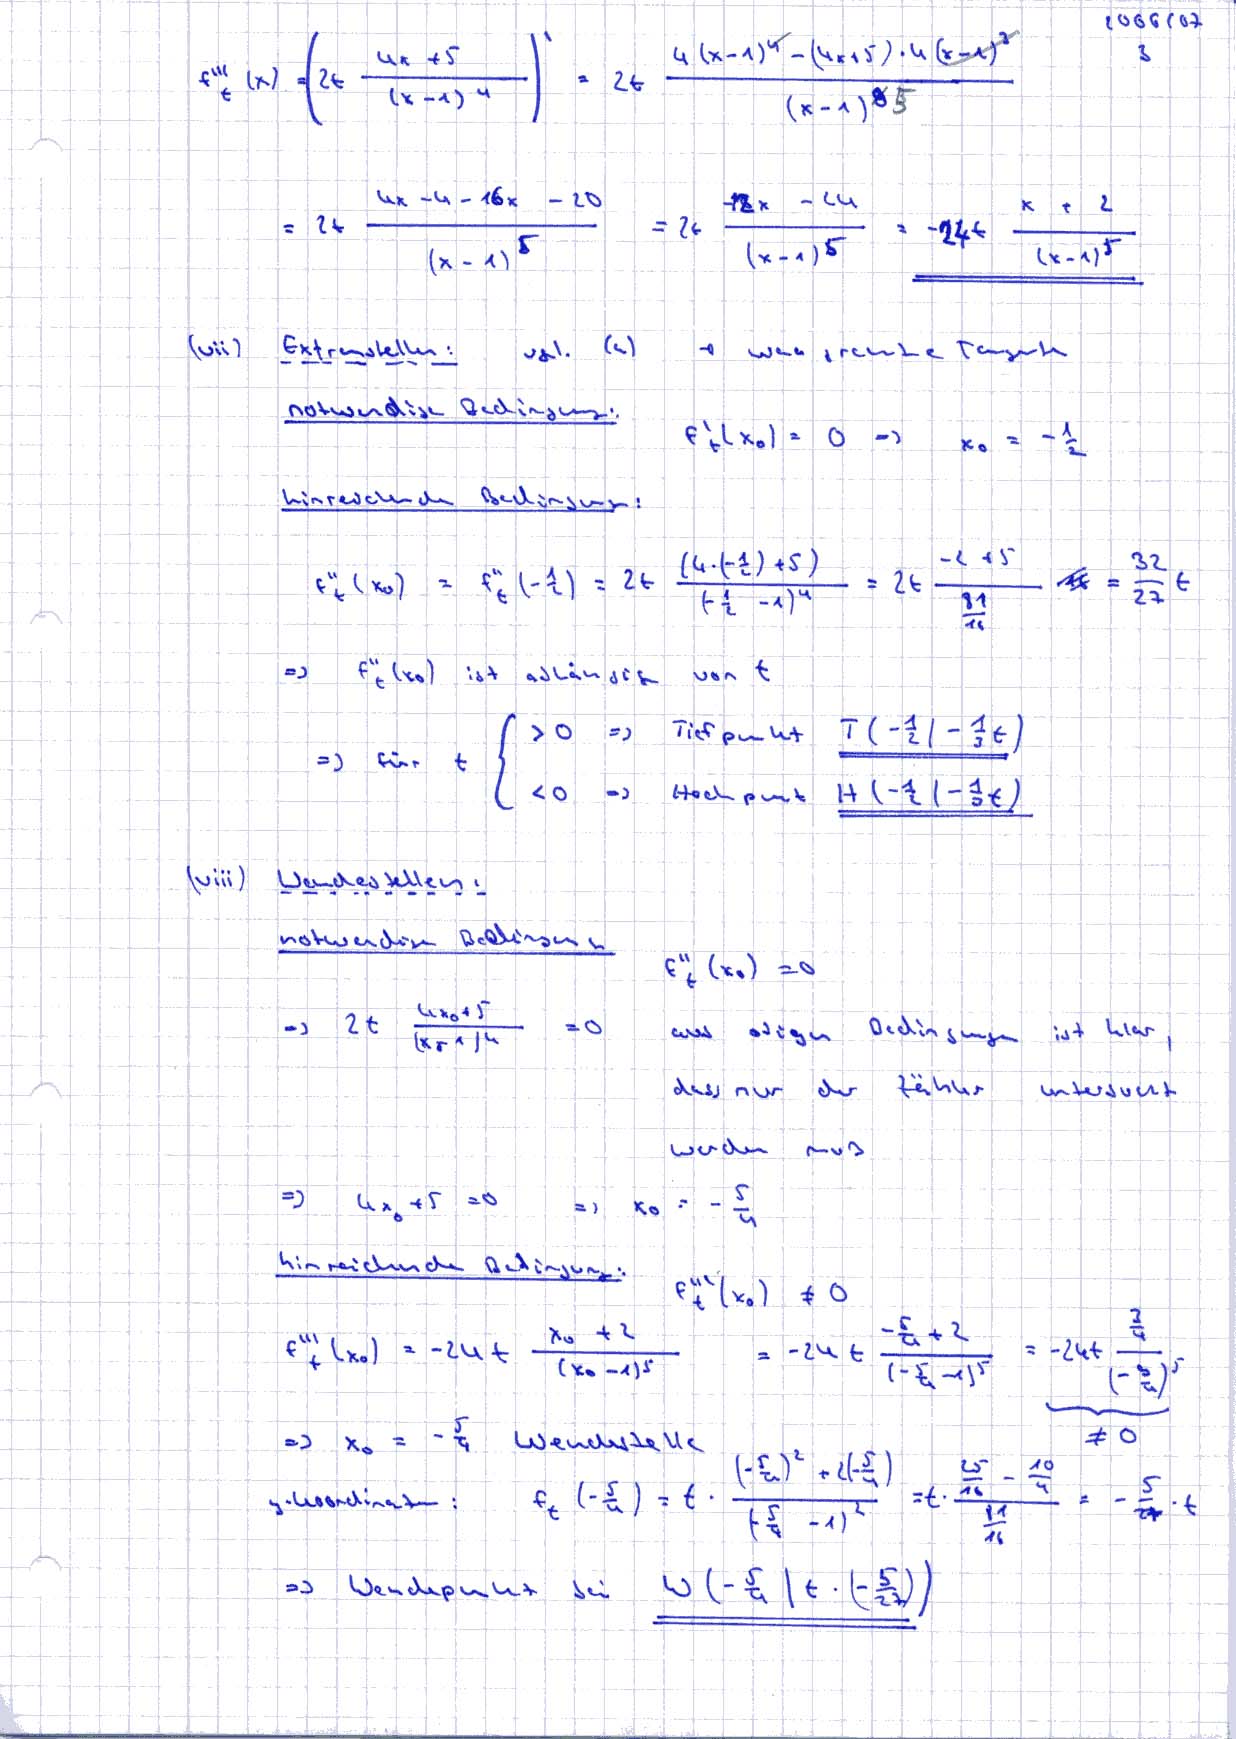 2006/07
3
f'''_t (x) = (2t (4x + 5)/((x-1)^4))' = 2t (4(x-1)^4 - (4x+5)·4(x-1)^3)/((x-1)^5)
= 2t (4x - 4 - 16x - 20)/((x-1)^5) = 2t (-12x - 24)/((x-1)^5) = -24t (x + 2)/((x-1)^5)
(vii) Extremstellen: vgl. (a) → waagrechte Tangente
notwendige Bedingung:
f'_t(x_0) = 0 => x_0 = -1/2
hinreichende Bedingung:
f''_t(x_0) = f''_t(-1/2) = 2t (4·(-1/2)+5)/((-1/2 -1)^4) = 2t (-2+5)/(81/16) = 32/27 t
=> f''_t(x_0) ist abhängig von t
=> für t { >0 => Tiefpunkt T(-1/2 | -1/3 t)
<0 => Hochpunkt H(-1/2 | -1/3 t)
(viii) Wendestellen:
notwendige Bedingung
f''_t(x_0) = 0
=> 2t (4x_0+5)/((x_0-1)^4) = 0 aus obigen Bedingungen ist klar,
dass nur der Zähler untersucht
werden muß
=> 4x_0+5 = 0 => x_0 = -5/4
hinreichende Bedingung:
f'''_t(x_0) ≠ 0
f'''_t(x_0) = -24t (x_0 + 2)/((x_0-1)^5) = -24t (-5/4 + 2)/((-5/4 -1)^5) = -24t (3/4)/((-9/4)^5)
≠ 0
=> x_0 = -5/4 Wendestelle
y-Koordinate: f_t(-5/4) = t · ((-5/4)^2 + 2(-5/4))/((-5/4 -1)^2) = t · (25/16 - 10/4)/(81/16) = -5/27 · t
=> Wendepunkt bei W(-5/4 | t·(-5/27))